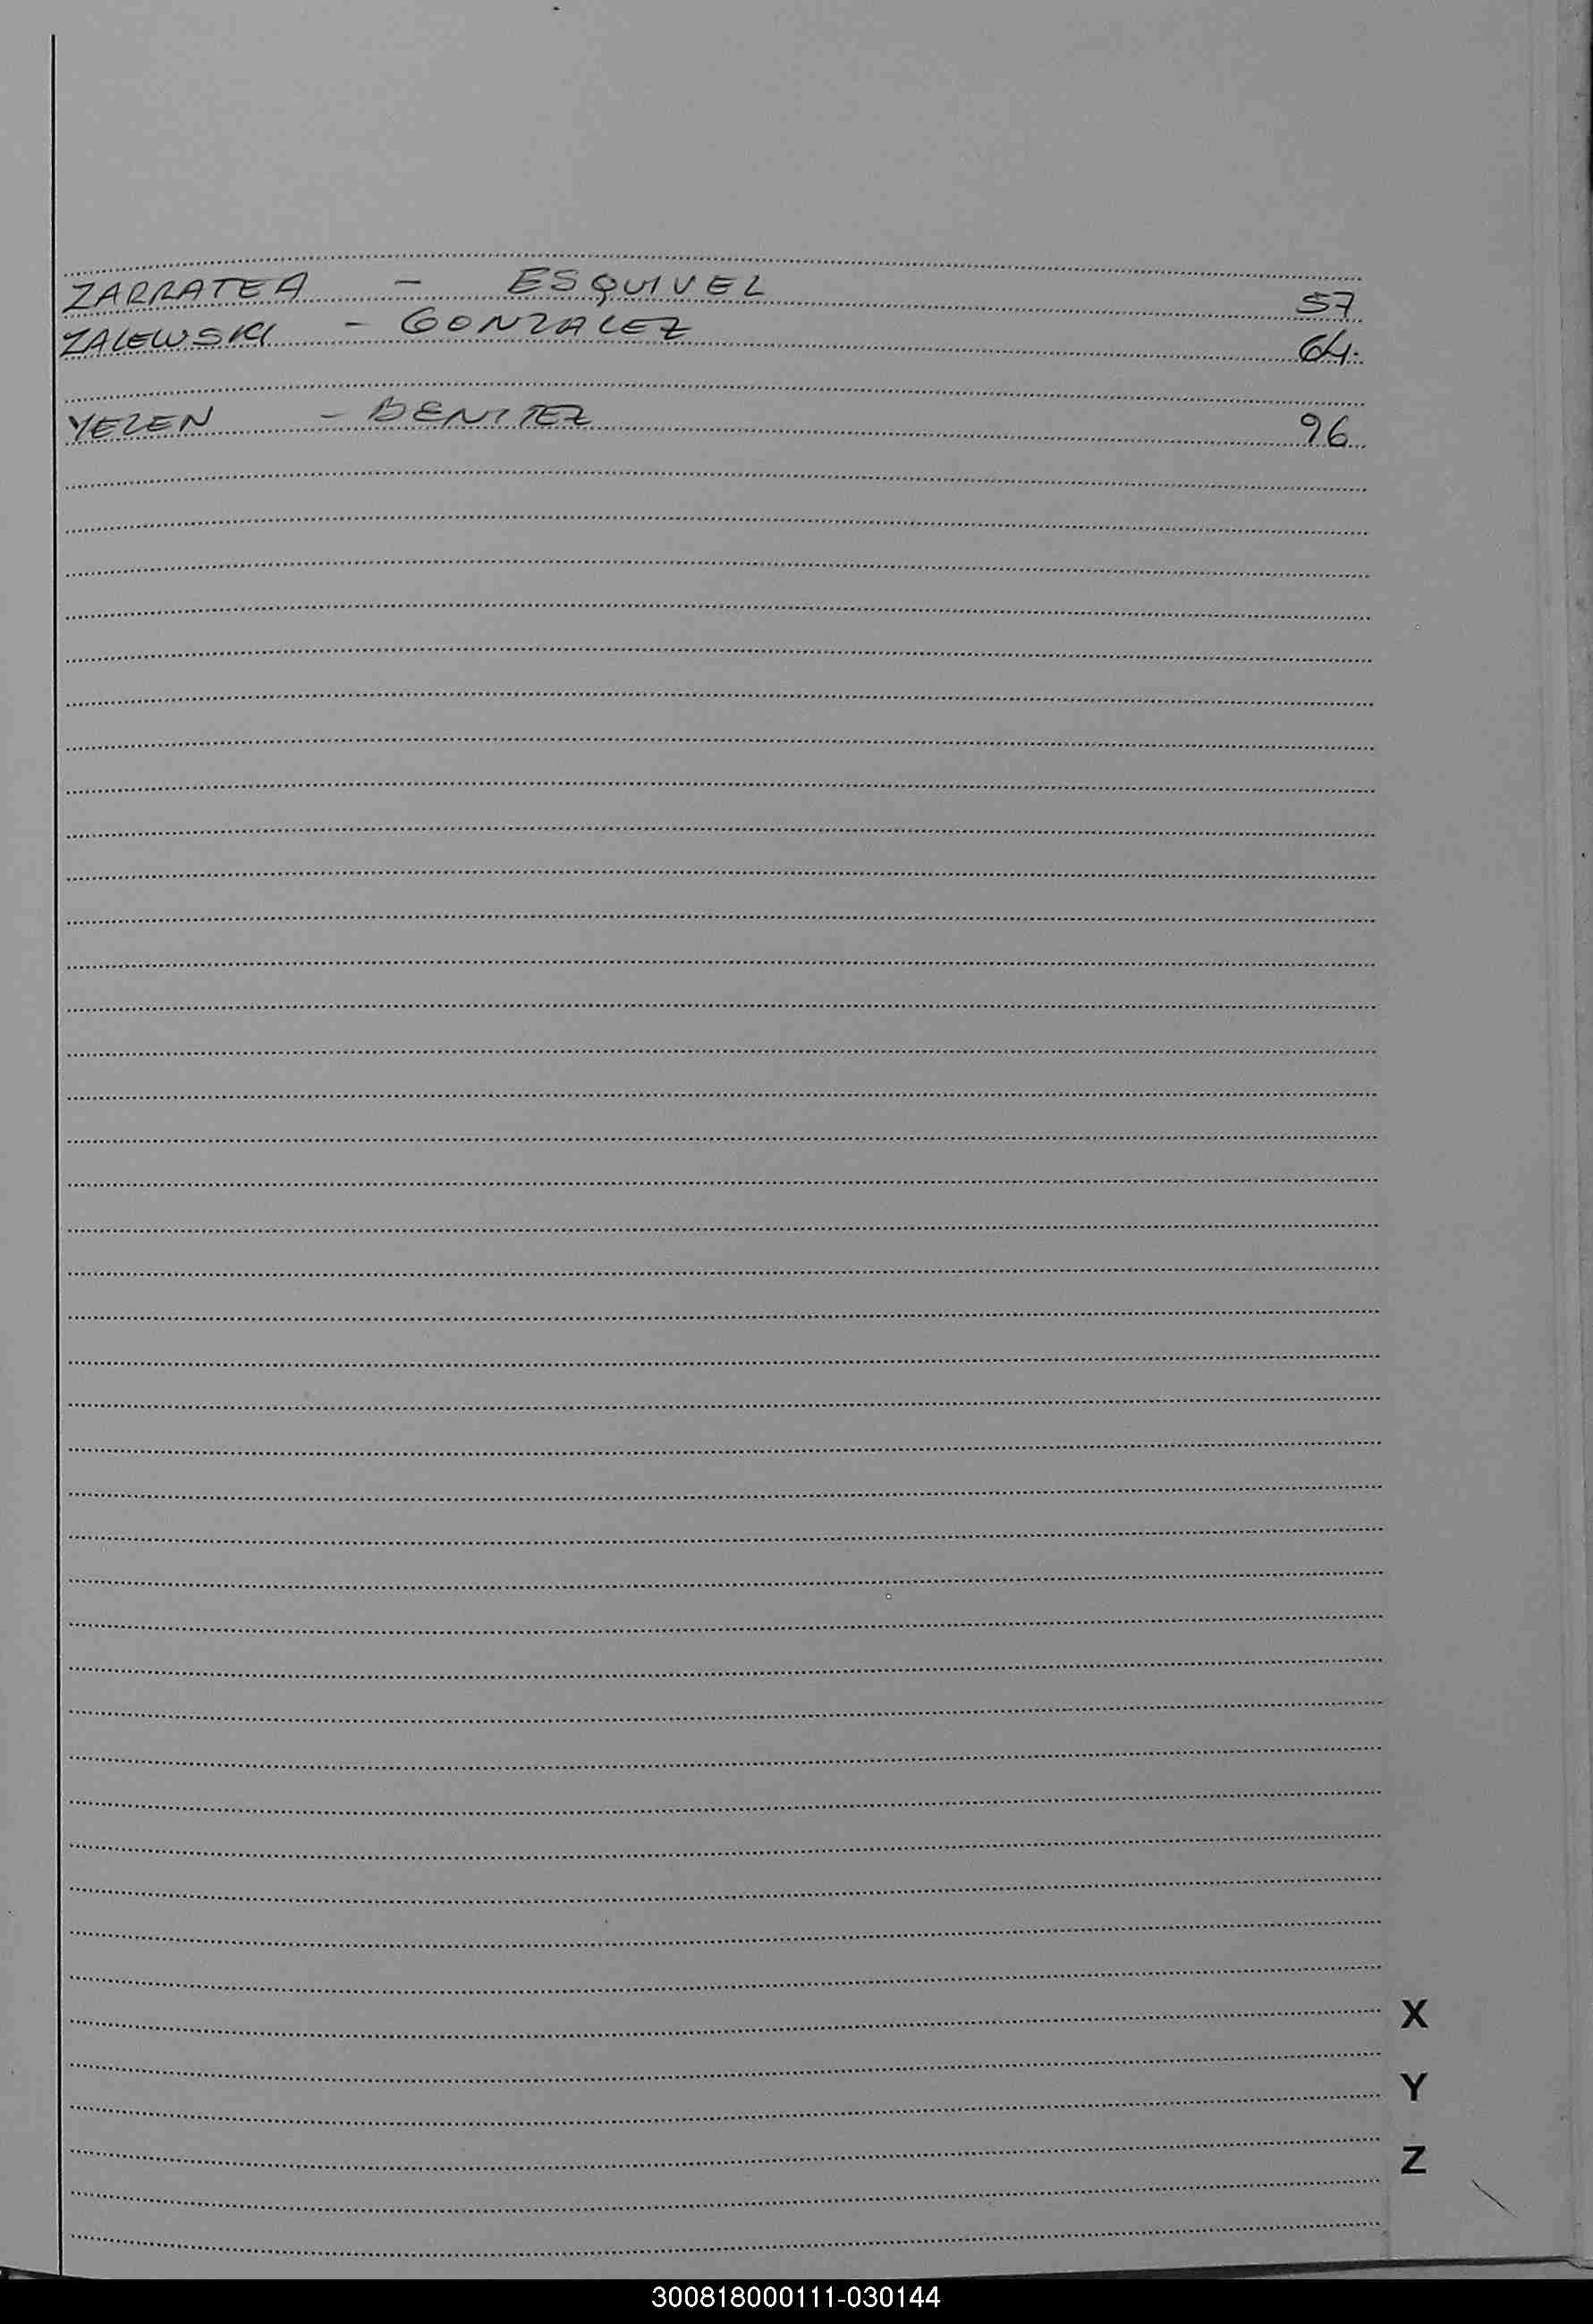 ZARRATEA - ESQUIVEL 57
ZALEWSKI - GONZALEZ 64.
YEZEN - BENITEZ 96
X
Y
Z
300818000111-030144